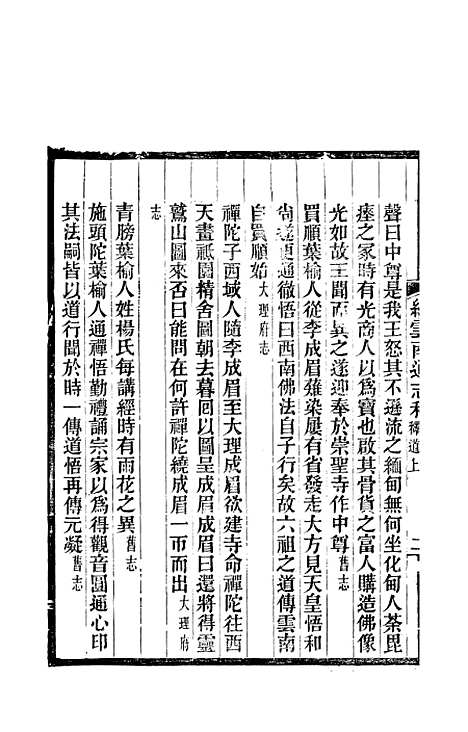 續雲南通志稿 釋道上 二
聲曰中尊是我王怒其不遜流之緬甸無何坐化甸人荼毘
瘞之家時有光商人以爲寶也啟其骨貨之富人購造佛像
光如故王聞而異之遂迎奉於崇聖寺作中尊舊志
買順葉榆人從李成眉薙染屢有省發走大方見天皇悟和
尚遂更通徹悟曰西南佛法自子行矣故六祖之道傳雲南
自買順始大理府志
禪陀子西域人隨李成眉至大理成眉欲建寺命禪陀往西
天畫祇園精舍圖朝去暮回以圖呈成眉成眉曰還將得靈
鷲山圖來否曰能問在何許禪陀繞成眉一帀而出大理府
志
青膀葉榆人姓楊氏每講經時有雨花之異舊志
施頭陀葉榆人通禪悟勤禮誦宗家以爲得觀音圓通心印
其法嗣皆以道行聞於時一傳道悟再傳元凝舊志